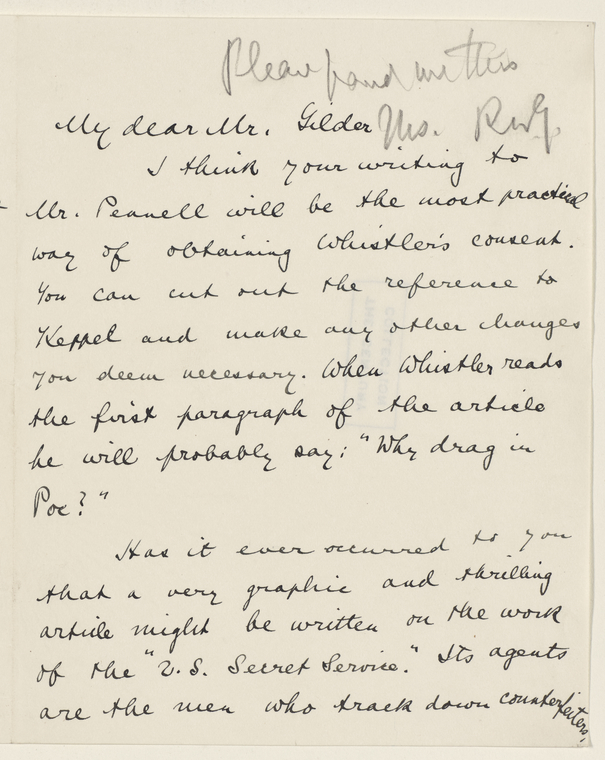 Please send me this
Ms. RWG.
My dear Mr. Gilder
I think your writing to
Mr. Pennell will be the most practical
way of obtaining Whistler's consent.
You can cut out the reference to
Keppel and make any other changes
you deem necessary. When Whistler reads
the first paragraph of the article
he will probably say: "Why drag in
Poe?"
Has it ever occurred to you
that a very graphic and thrilling
article might be written on the work
of the "U.S. Secret Service." Its agents
are the men who track down counterfeiters,